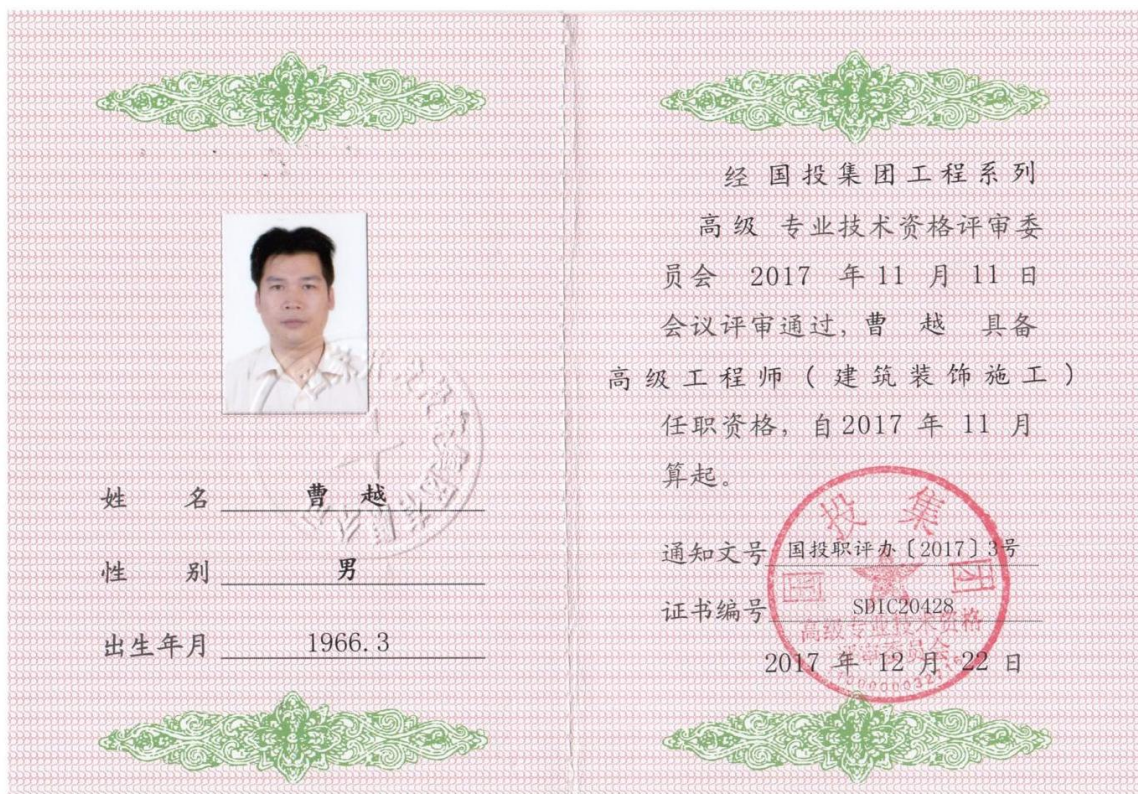 姓 名 曹 越
性 别 男
出生年月 1966.3
经 国投集团工程系列
高级 专业技术资格评审委
员会 2017 年 11 月 11 日
会议评审通过, 曹 越 具备
高级工程师(建筑装饰施工)
任职资格, 自 2017 年 11 月
算起。
通知文号 国投职评办〔2017〕3号
证书编号 SDIC20428
2017 年 12 月 22 日
国投集团
高级专业技术资格
评审委员会